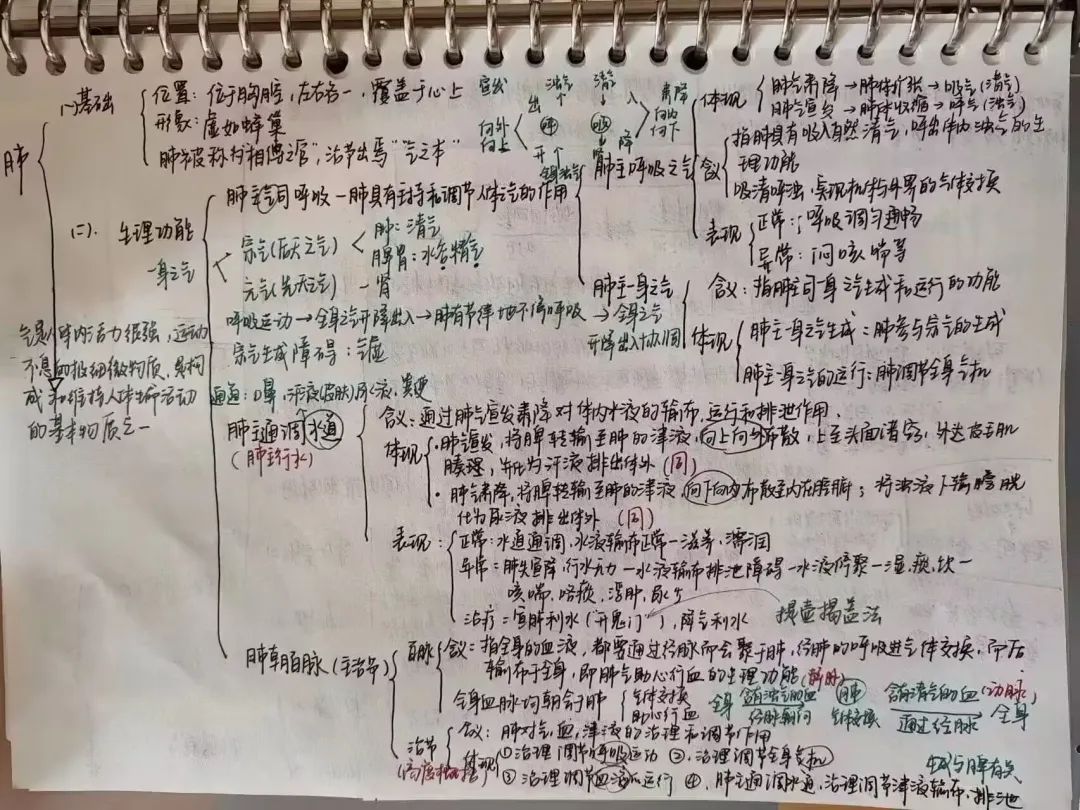 肺
(一)基础
位置：位于胸腔，左右各一，覆盖于心上
形象：虚如蜂巢
肺被称为"相傅之官"，治节出焉"气之本"
宣发 浊气 清气
出 肺 入 肃降
向外 向上 向内 向下
开 降
全身浊气
(二)、生理功能
一身之气
肺主气司呼吸—肺具有主持和调节人体之气的作用
宗气(后天之气)
肺：清气
脾胃：水谷精气
元气(先天之气)—肾
呼吸运动→全身之气升降出入→肺有节律地不停呼吸→全身之气升降出入协调
宗气生成障碍：气虚
肺主呼吸之气
体现
肺气肃降→肺体扩张→吸气(清气)
肺气宣发→肺体收缩→呼气(浊气)
含义
指肺具有吸入自然清气，呼出体内浊气的生理功能
吸清呼浊，实现机体与外界的气体交换
表现
正常：呼吸调匀通畅
异常：闷咳喘等
肺主一身之气
含义：指肺主司一身之气生成和运行的功能
体现
肺主一身之气生成：肺参与宗气的生成
肺主一身之气的运行：肺调节全身气机
气是人体内活力很强，运动
不息的极细微物质，是构
成和维持人体生命活动
的基本物质之一
通道：口鼻，汗液(皮肤)尿液，粪便
肺主通调水道
(肺主行水)
含义：通过肺气宣发肃降对体内水液的输布，运行和排泄作用.
体现
·肺气宣发，将脾转输至肺的津液，向上向外布散，上至头面诸窍，外达皮毛肌
腠理，生化为汗液排出体外 (同)
·肺气肃降，将脾转输至肺的津液，向下向内布散至内在脏腑；将浊液下输膀胱
化为尿液排出体外 (同)
表现：
正常：水道通调，水液输布正常—滋养，濡润
异常：肺失宣降，行水无力—水液输布排泄障碍—水液停聚—湿，痰，饮—
咳喘，咯痰，浮肿，尿少
治疗：宣肺利水("开鬼门")，降气利水 提壶揭盖法
肺朝百脉(主治节)
百脉
含义：指全身的血液，都要通过经脉而会聚于肺，经肺的呼吸进气体交换，而后
输布于全身，即肺气助心行血的生理功能(静脉)
全身血脉均朝会于肺
气体交换
助心行血
全身 含有浊气的血 肺 含有清气的血(动脉) 全身
经脉朝向 气体交换 通过经脉
治节
含义：肺对气，血，津液的治理和调节作用
体现
①治理调节呼吸运动 ②、治理调节全身气机
③治理调节血液的运行 ④、肺主通调水道，治理调节津液输布，排泄
生成与脾有关